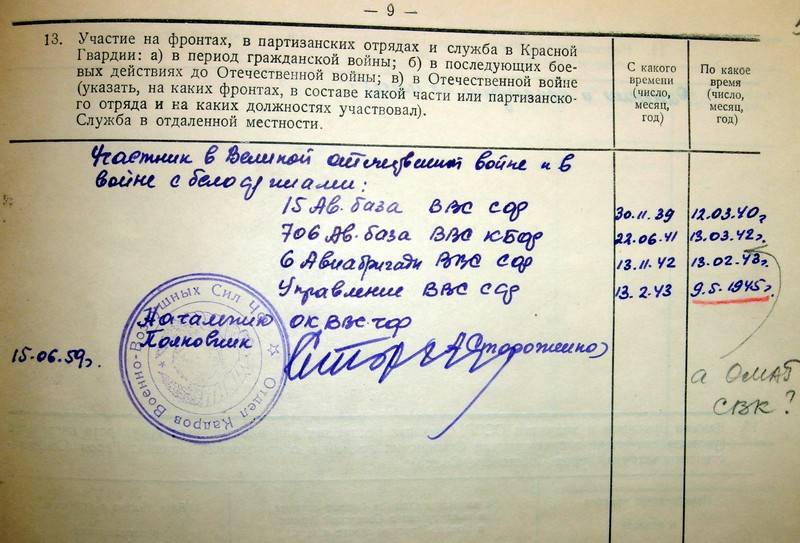 — 9 —
13. Участие на фронтах, в партизанских отрядах и служба в Красной
Гвардии: а) в период гражданской войны; б) в последующих бое-
вых действиях до Отечественной войны; в) в Отечественной войне
(указать, на каких фронтах, в составе какой части или партизанско-
го отряда и на каких должностях участвовал).
Служба в отдаленной местности.
С какого
времени
(число,
месяц,
год)
По какое
время
(число,
месяц,
год)
Участник в Великой отечественной войне и в
войне с белофинами:
15 Ав. база ВВС СФ 30.11.39 12.03.40г.
706 Ав. база ВВС КБФ 22.06.41 13.03.42г.
6 Авиабригади ВВС СФ 13.11.42 13.02.43г.
Управление ВВС СФ 13.2.43 9.5.1945г.
Начальник ОК ВВС ЧФ
Полковник А Стороженко
15.06.59г.
Отдел Кадров Военно-Воздушных Сил
а ОМАБ
СВК?